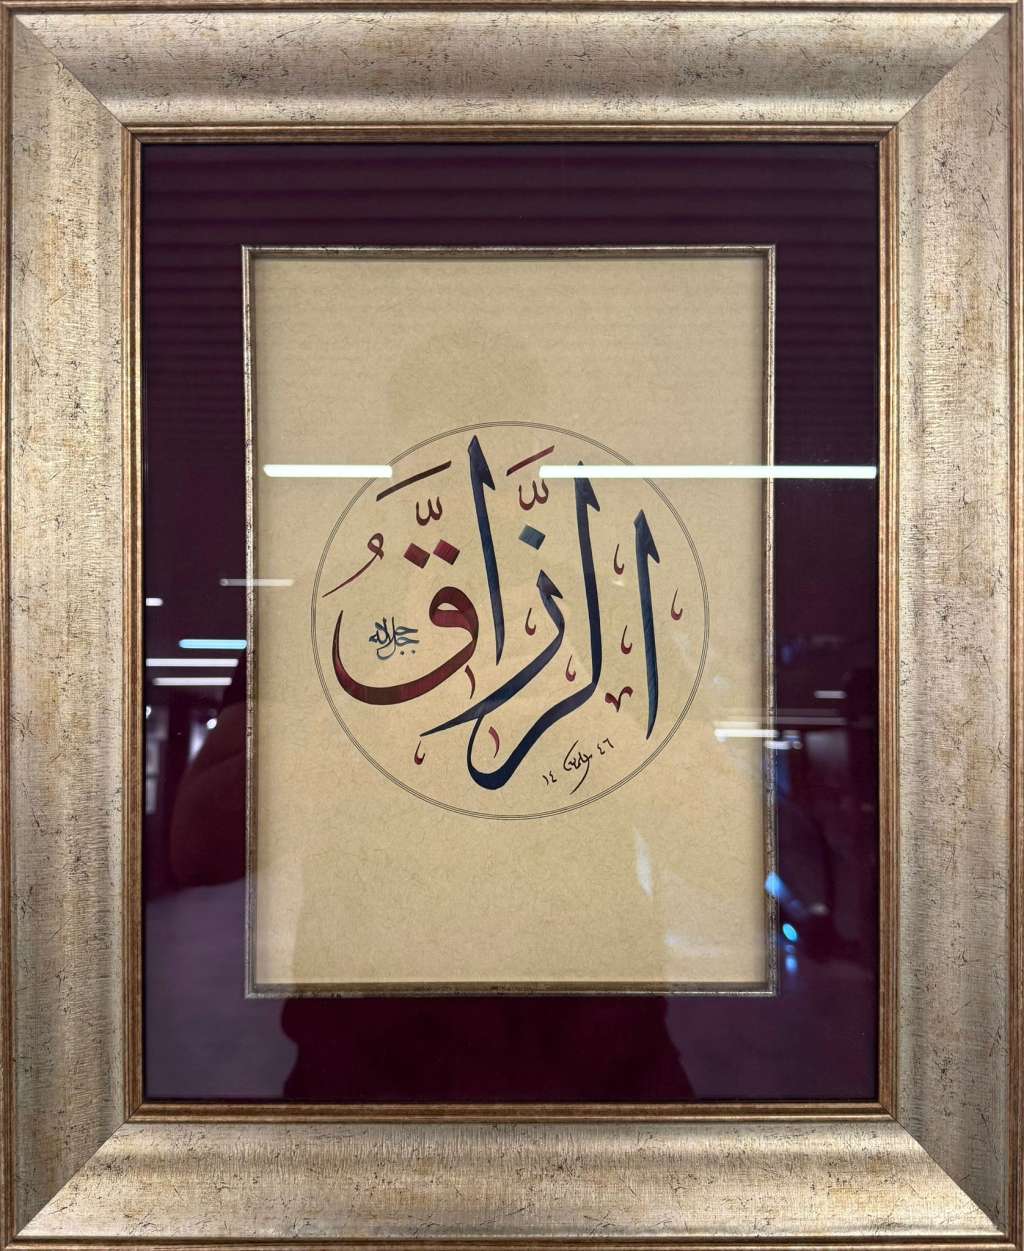 الرَّزَّاقُ
جل جلاله
١٤ ٤٦